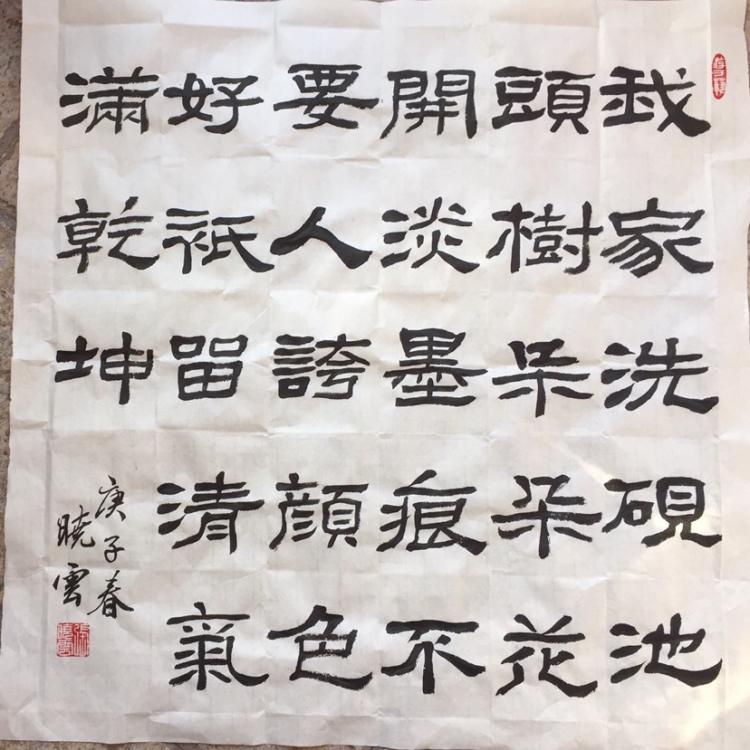 我家洗硯池
頭樹朵朵花
開淡墨痕不
要人誇顔色
好祇留清氣
滿乾坤
庚子春
曉雲